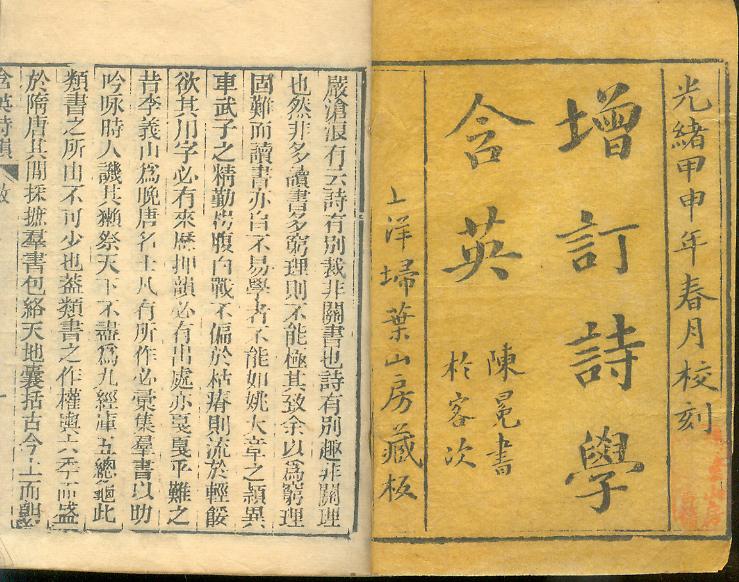 光緒甲申年春月校刻
增訂詩學
含英
陳冕書
於客次
上洋埽葉山房藏板
嚴滄浪有云詩有別裁非關書也詩有別趣非關理
也然非多讀書多窮理則不能極其致余以爲窮理
固難而讀書亦自不易學者不能如姚大章之穎異
車武子之精勤枵腹白戰不偏於枯瘠則流於輕餒
欲其用字必有來歷押韻必有出處亦戛戛乎難之
昔李義山爲晚唐名士凡有所作必彙集羣書以助
吟咏時人譏其獺祭天下不盡爲九經庫五總龜此
類書之所由不可少也葢類書之作權輿六季而盛
於隋唐其間採摭羣書包絡天地囊括古今上而朝
含英詩韻
敘